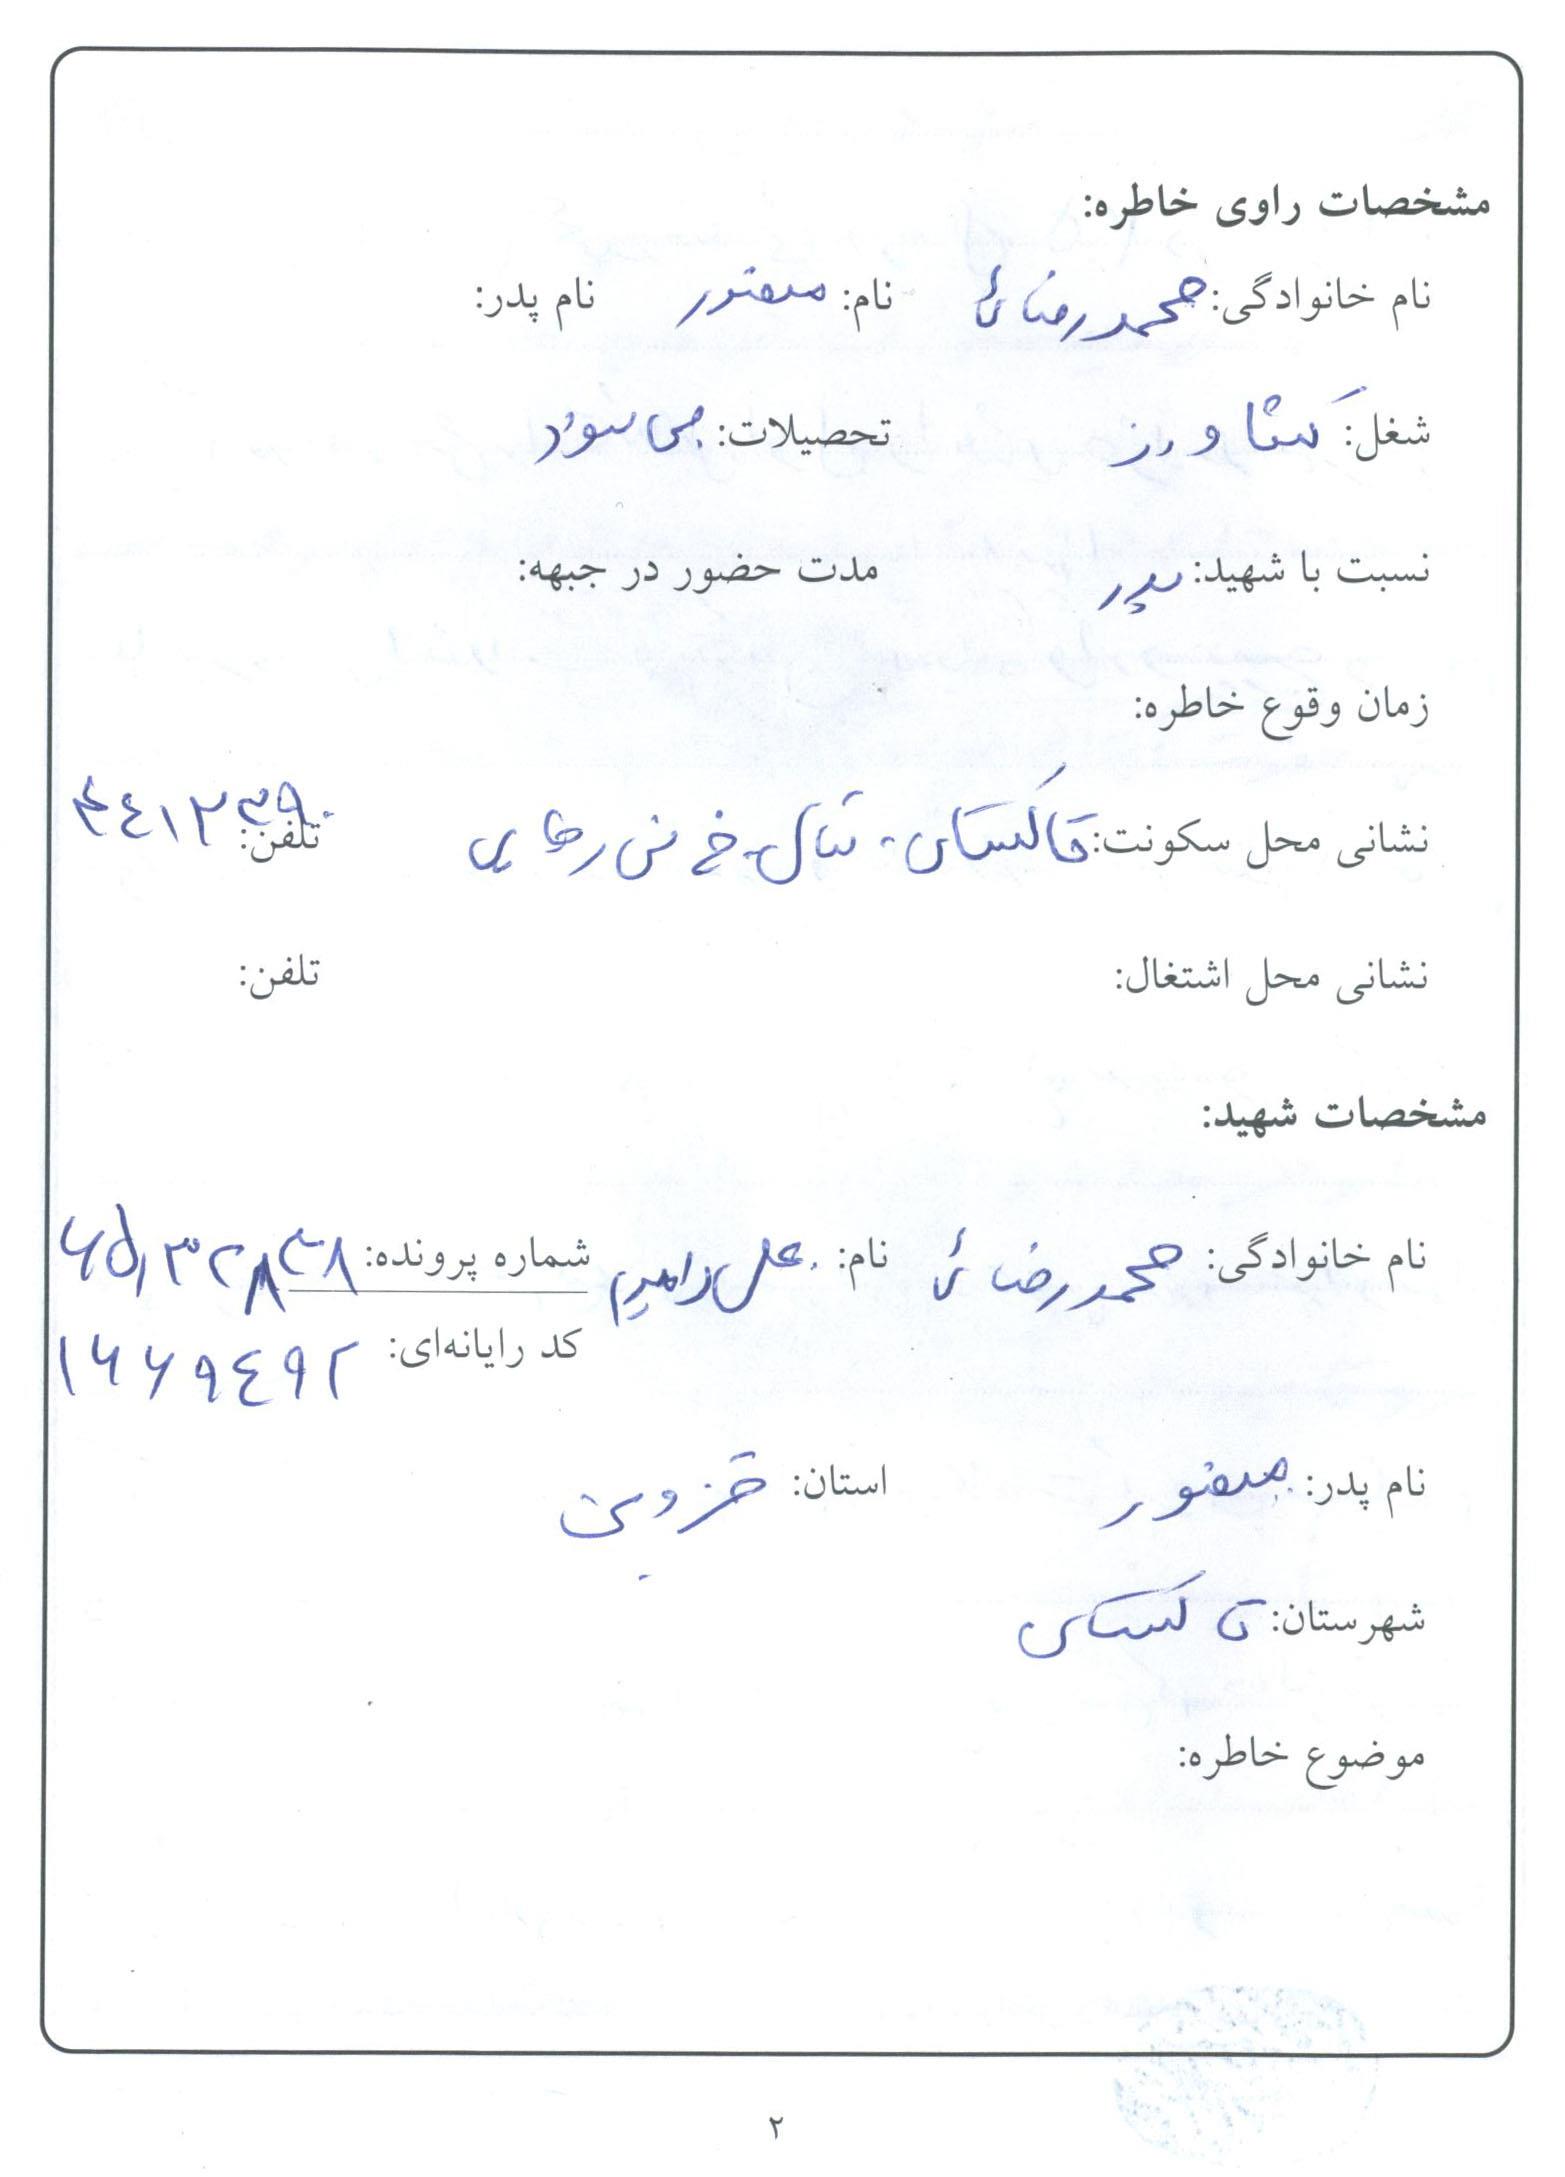 مشخصات راوی خاطره:
نام خانوادگی: محمدرضائی نام: منصور نام پدر:
شغل: کشاورز تحصیلات: بی سواد
نسبت با شهید: پدر مدت حضور در جبهه:
زمان وقوع خاطره:
نشانی محل سکونت: تاکستان - تلفن:
نشانی محل اشتغال: تلفن:
مشخصات شهید:
نام خانوادگی: محمدرضائی نام: علی شماره پرونده:
کد رایانه‌ای: ۱۶۶۹۴۹۲
نام پدر: منصور استان: قزوین
شهرستان: تاکستان
موضوع خاطره:
۲